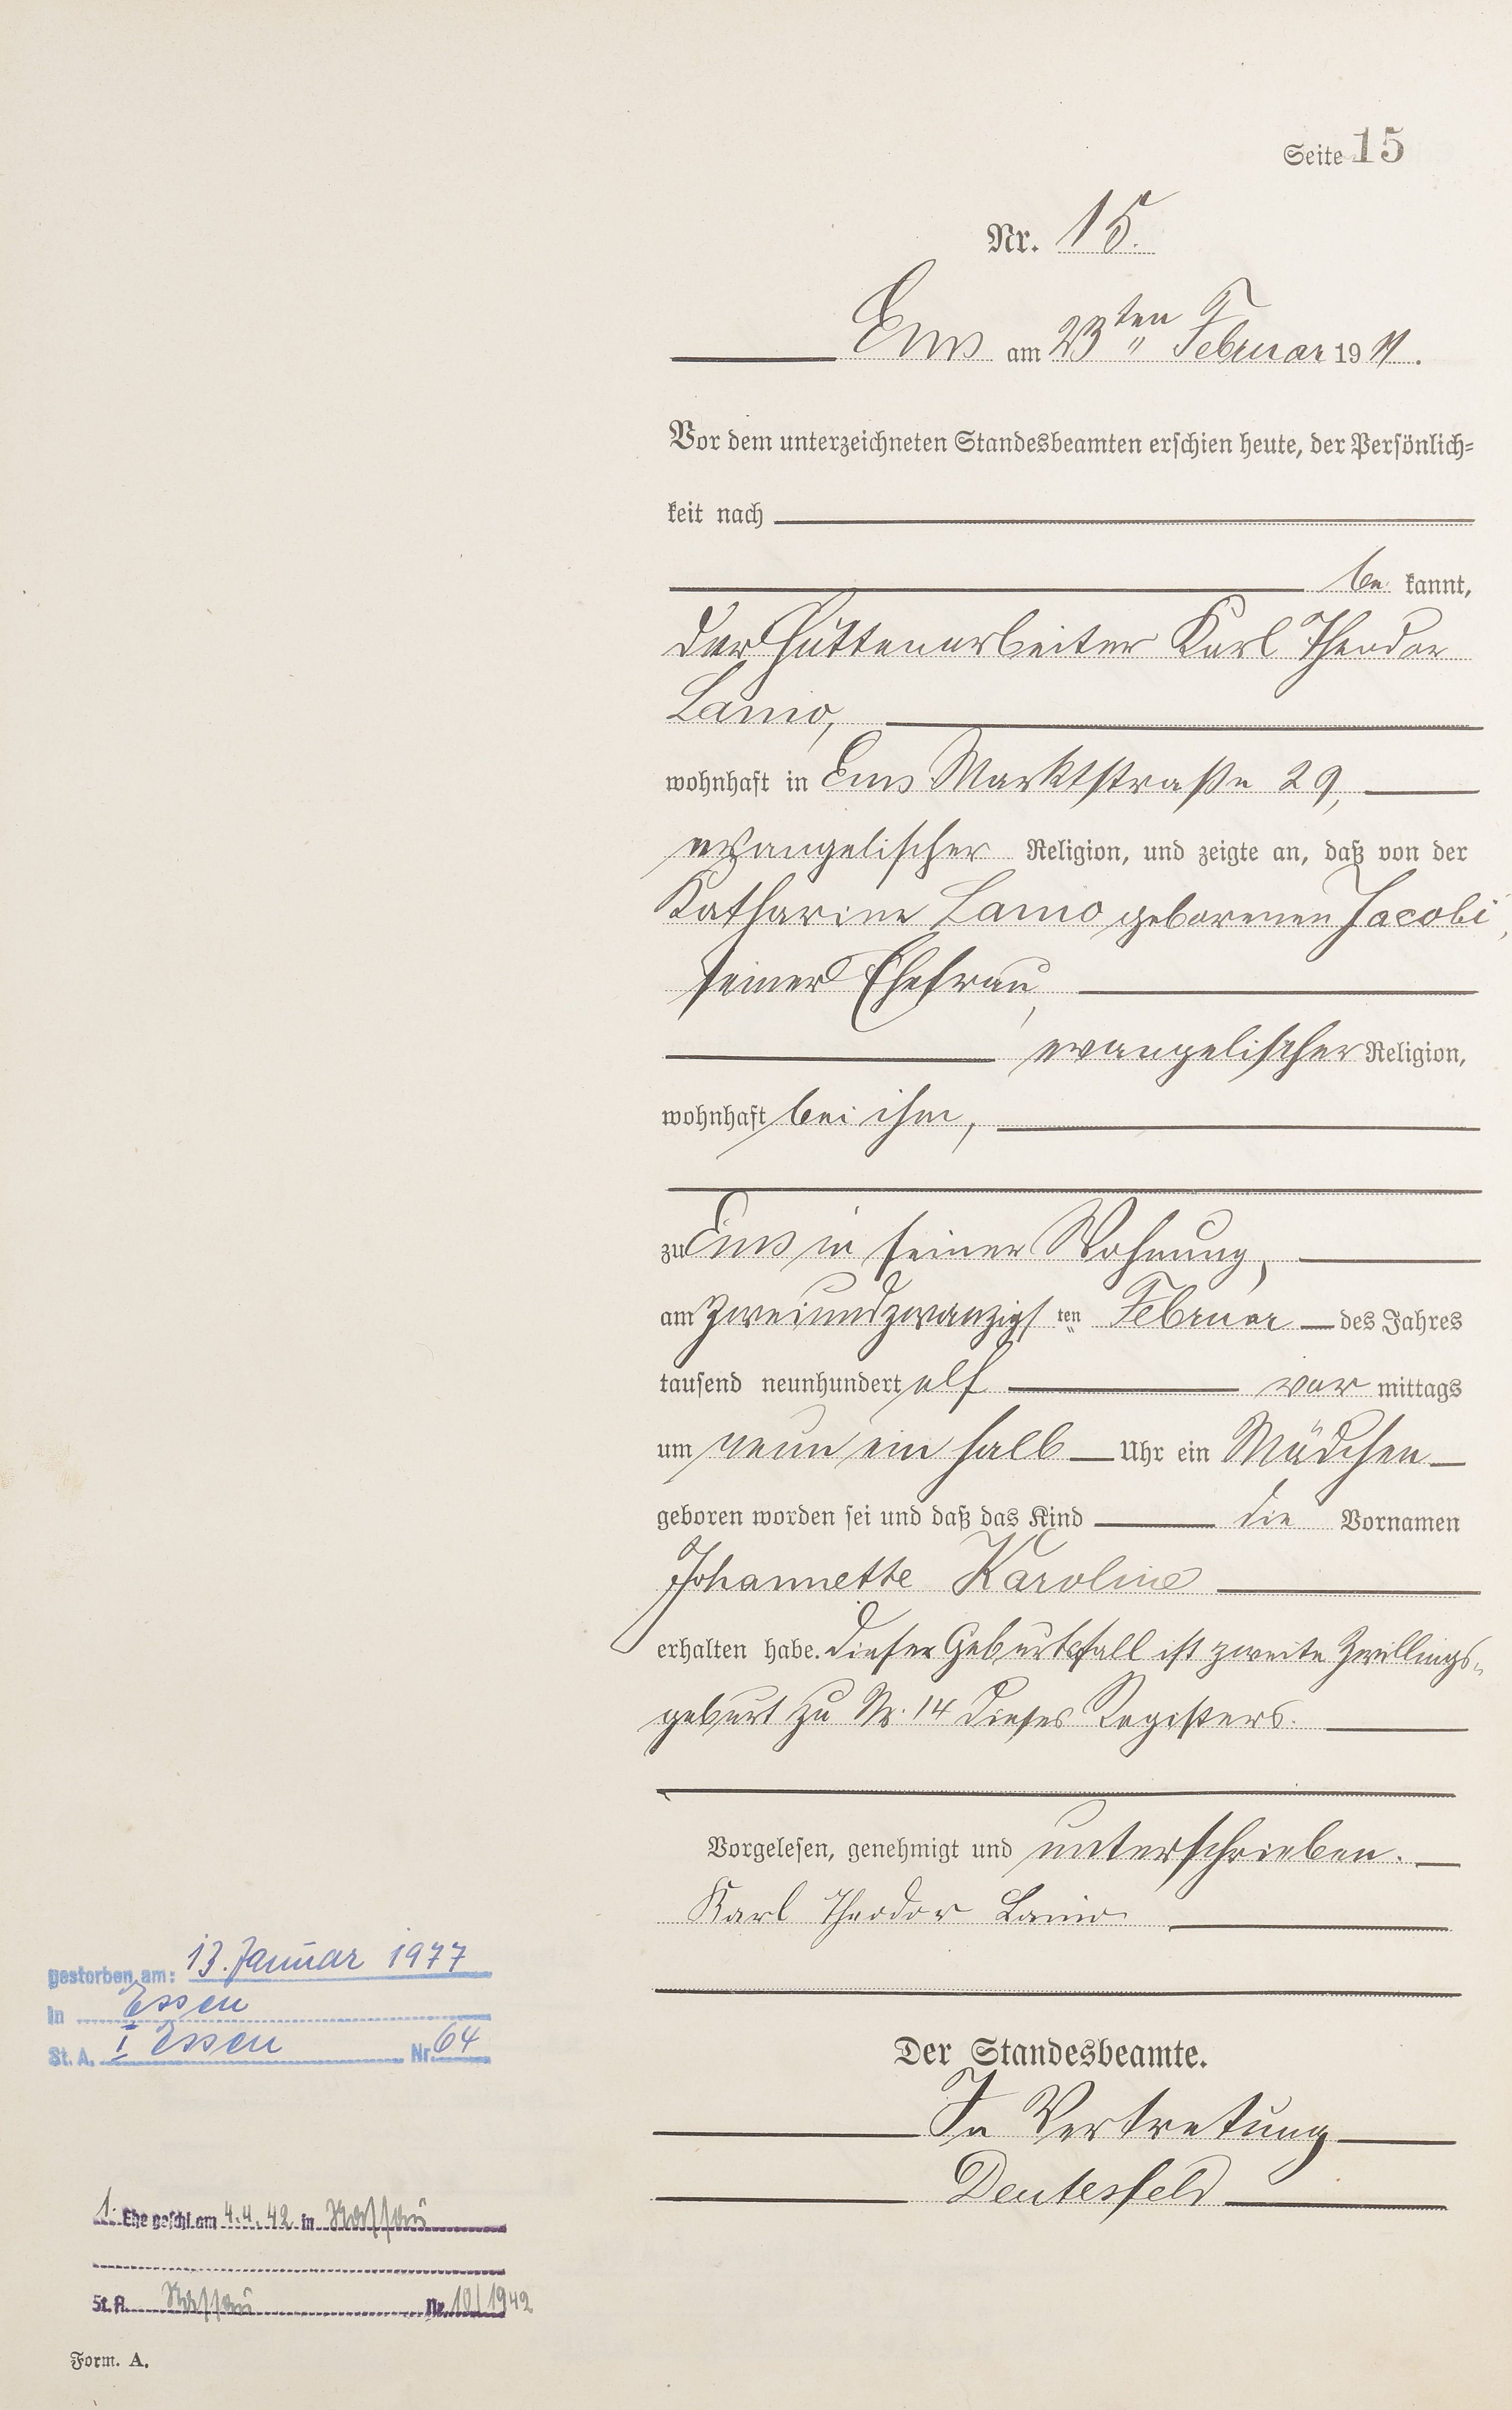 Seite 15
Nr. 15.
Ems am 23ten Februar 1911.
Vor dem unterzeichneten Standesbeamten erschien heute, der Persönlich=
keit nach
be kannt,
der Hüttenarbeiter Karl Theodor
Lamo,
wohnhaft in Ems Marktstraße 29,
evangelischer Religion, und zeigte an, daß von der
Katharine Lamo geborenen Jacobi,
seiner Ehefrau,
evangelischer Religion,
wohnhaft bei ihm,
zu Ems in seiner Wohnung,
am zweiundzwanzigsten Februar des Jahres
tausend neunhundert elf vor mittags
um neun ein halb Uhr ein Mädchen
geboren worden sei und daß das Kind die Vornamen
Johannette Karoline
erhalten habe. Dieser Geburtsfall ist zweite Zwillings=
geburt zu Nr. 14 dieses Registers.
Vorgelesen, genehmigt und unterschrieben.
Karl Theodor Lamo
Der Standesbeamte.
In Vertretung
Deutesfeld
gestorben am: 13. Januar 1977
in Essen
St. A. I Essen Nr. 64
1. Ehe geschl. am 4.4.42 in Nassau
St. A. Nassau Nr. 10/1942
Form. A.